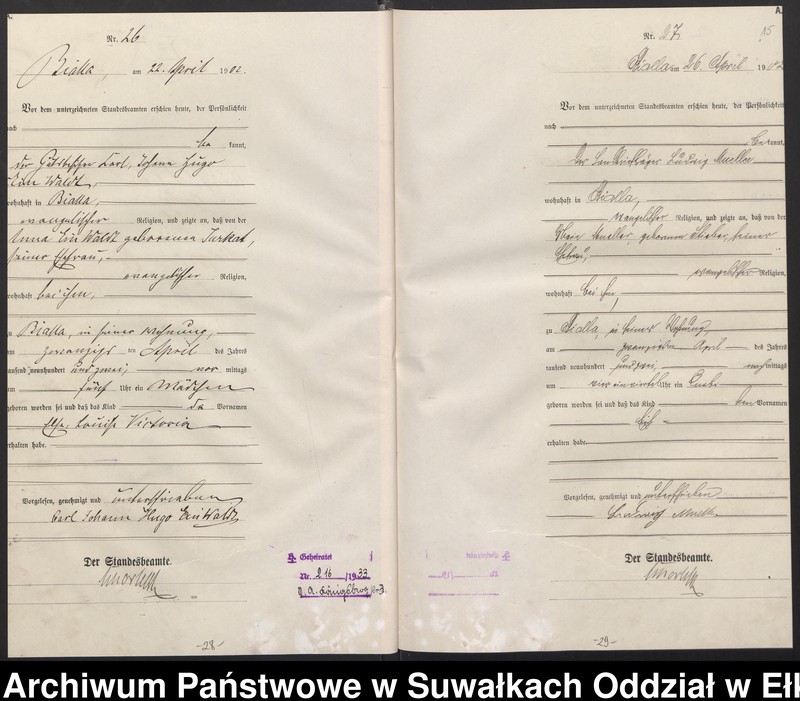 Nr. 26
Bialla, am 22. April 1902.
Vor dem unterzeichneten Standesbeamten erschien heute, der Persönlichkeit
nach
be kannt,
der Karl, Johann Hugo
wohnhaft in Bialla,
evangelischer Religion, und zeigte an, daß von der
Anna geborenen Turkat,
seiner Ehefrau,
evangelischer Religion,
wohnhaft bei ihm,
zu Bialla, in seiner Wohnung,
am zwanzigsten April des Jahres
tausend neunhundert und zwei, vor mittags
um fünf Uhr ein Mädchen
geboren worden sei und daß das Kind die Vornamen
Else, Louise Victoria
erhalten habe.
Vorgelesen, genehmigt und unterschrieben
Carl Johann Hugo
Der Standesbeamte.
4. Geheiratet
Nr. 216/1933
St. A. Königsberg Pr. 3
-28-
A.
15
Nr. 27.
Bialla am 26. April 1902
Vor dem unterzeichneten Standesbeamten erschien heute, der Persönlichkeit
nach
be kannt,
der Landbriefträger Ludwig Mueller
wohnhaft in Bialla,
evangelischer Religion, und zeigte an, daß von der
Mueller, geborenen seiner
Ehefrau,
evangelischer Religion,
wohnhaft bei ihm,
zu Bialla, in seiner Wohnung,
am April des Jahres
tausend neunhundert und zwei, nach mittags
um vier einviertel Uhr ein Knabe
geboren worden sei und daß das Kind den Vornamen
erhalten habe.
Vorgelesen, genehmigt und unterschrieben
Ludwig Mueller
Der Standesbeamte.
-29-
Archiwum Państwowe w Suwałkach Oddział w Ełk